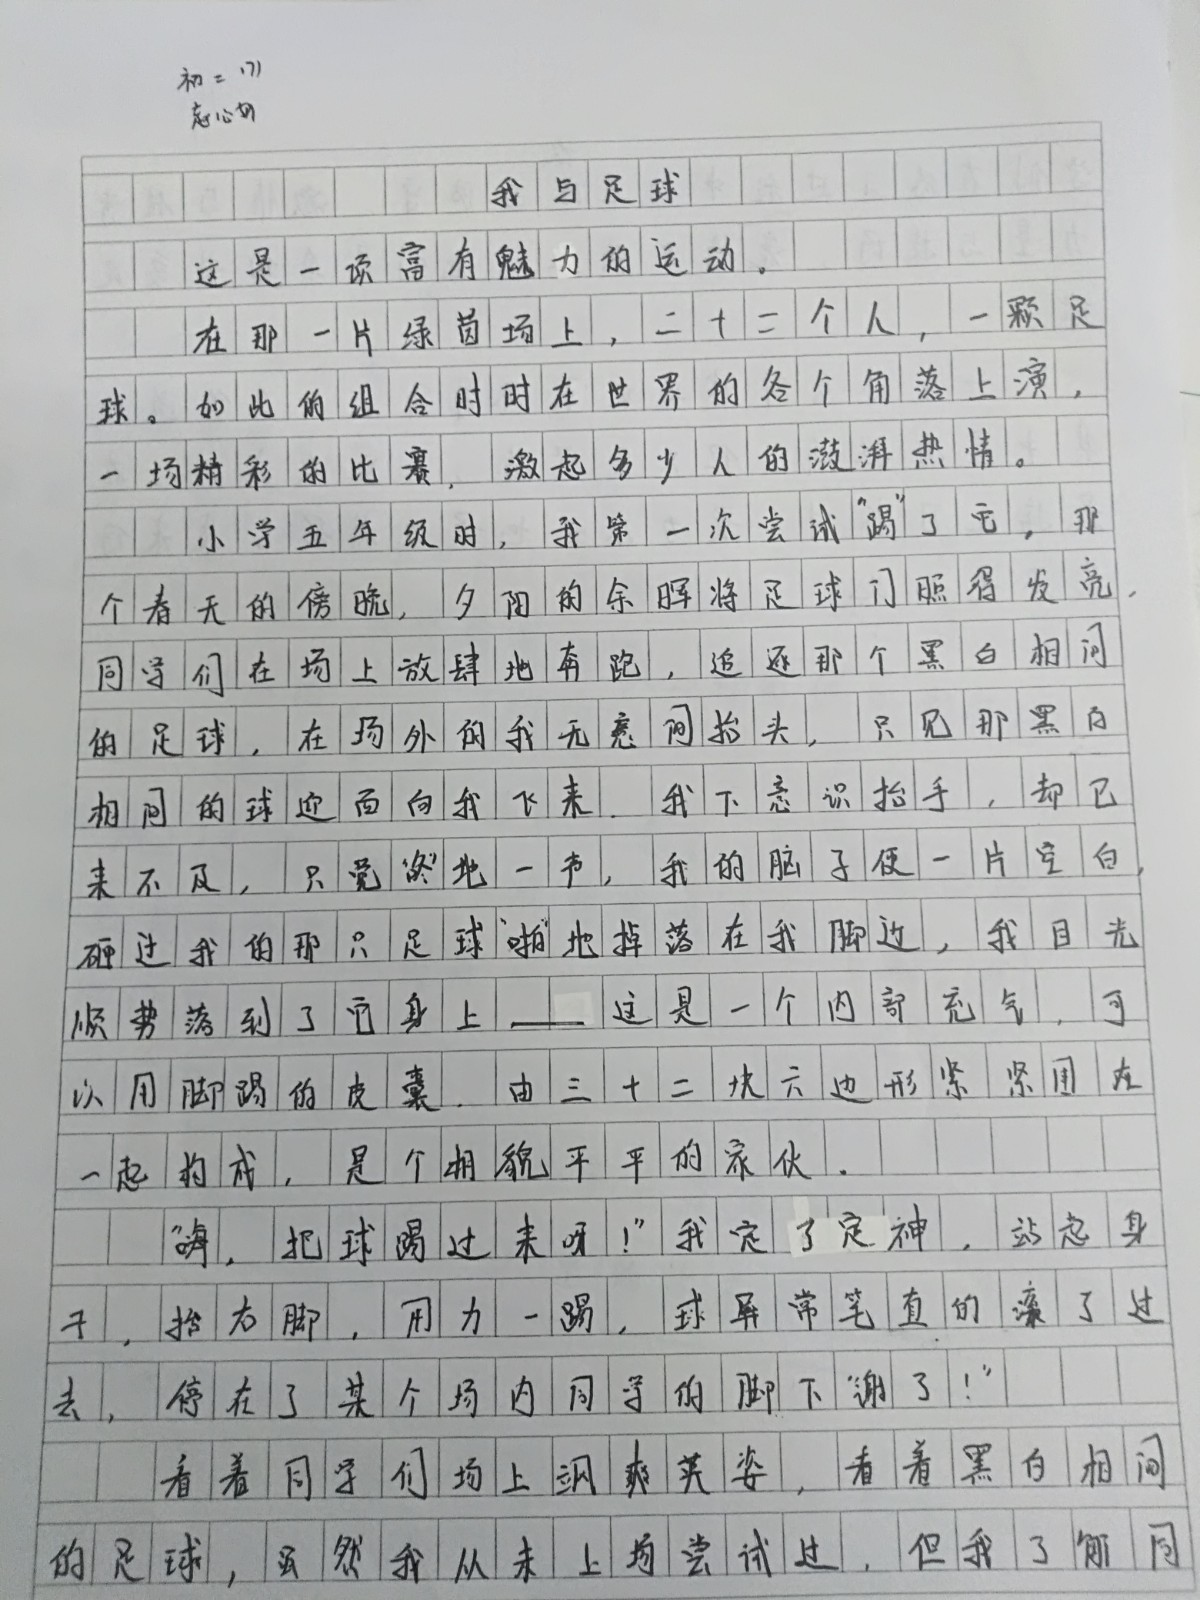 初二(7)
我与足球
这是一项富有魅力的运动。
在那一片绿茵场上，二十二个人，一颗足
球。如此的组合时时在世界的各个角落上演，
一场精彩的比赛，激起多少人的澎湃热情。
小学五年级时，我第一次尝试“踢”了它，那
个春天的傍晚，夕阳的余晖将足球门照得发亮，
同学们在场上放肆地奔跑，追逐那个黑白相间
的足球，在场外的我无意间抬头，只见那黑白
相间的球迎面向我飞来．我下意识抬手，却已
来不及，只觉“咚”地一声，我的脑子便一片空白，
砸过我的那只足球“啪”地掉落在我脚边，我目光
顺势落到了它身上——这是一个内部充气，可
以用脚踢的皮囊．由三十二块六边形紧紧围在
一起构成，是个相貌平平的家伙．
“嗨，把球踢过来呀！”我定了定神，站起身
子，抬右脚，用力一踢，球异常笔直的滚了过
去，停在了某个场内同学的脚下“谢了！”
看着同学们场上飒爽英姿，看着黑白相间
的足球，虽然我从未上场尝试过，但我了解同